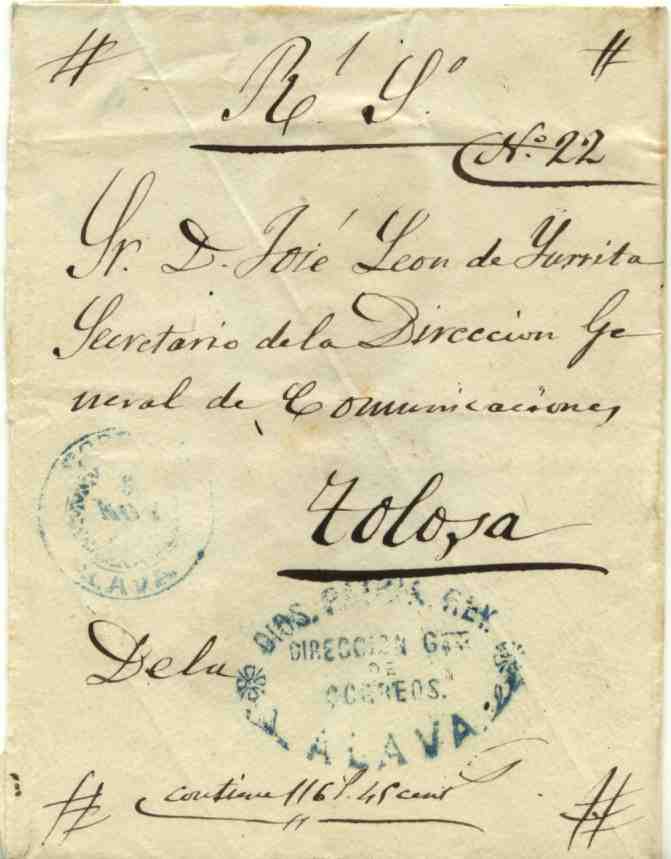 Rl. So.
No. 22
Sr. D. José Leon de Yurrita
Secretario de la Direccion Ge
neral de Comunicaciones
Tolosa
ALAVA
De la
DIOS. PATRIA. REY.
DIRECCION GRAL
DE
CORREOS.
ALAVA
contiene 116 45 cent